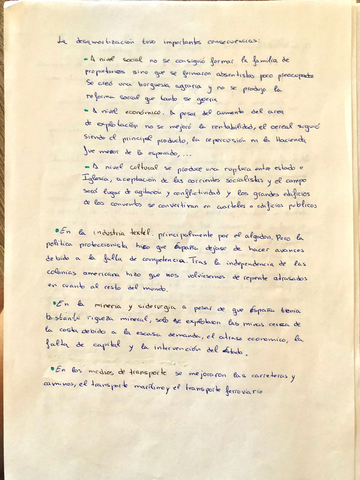 La desamortización tuvo importantes consecuencias:
- A nivel social no se consiguió formar la familia de
propietarios sino que se formaron absentistas poco preocupados
Se creó una burguesía agraria y no se produjo la
reforma social que tanto se quería
- A nivel económico. A pesar del aumento del area
de explotación no se mejoró la rentabilidad, el cereal siguió
siendo el principal producto, la repercusión en la Hacienda
fue menor de lo esperado, ...
- A nivel cultural se produce una ruptura entre estado e
Iglesia, aceptación de las corrientes socialistas y el campo
será lugar de agitación y conflictividad y los grandes edificios
de los conventos se convertiran en cuarteles o edificios publicos
• En la industria textil: principalmente por el algodon. Pero la
política proteccionista hizo que España dejase de hacer avances
debido a la falta de competencia. Tras la independencia de las
colonias americana hizo que nos volviesemos de repente atrasados
en cuanto al resto del mundo.
• En la mineria y siderurgia a pesar de que España tenia
bastante riqueza mineral, solo se explotaban las minas cerca de
la costa debido a la escasa demanda, el atraso economico, la
falta de capital y la intervención del Estado.
• En los medios de transporte se mejoraron las carreteras y
caminos, el transporte marítimo y el transporte ferroviario